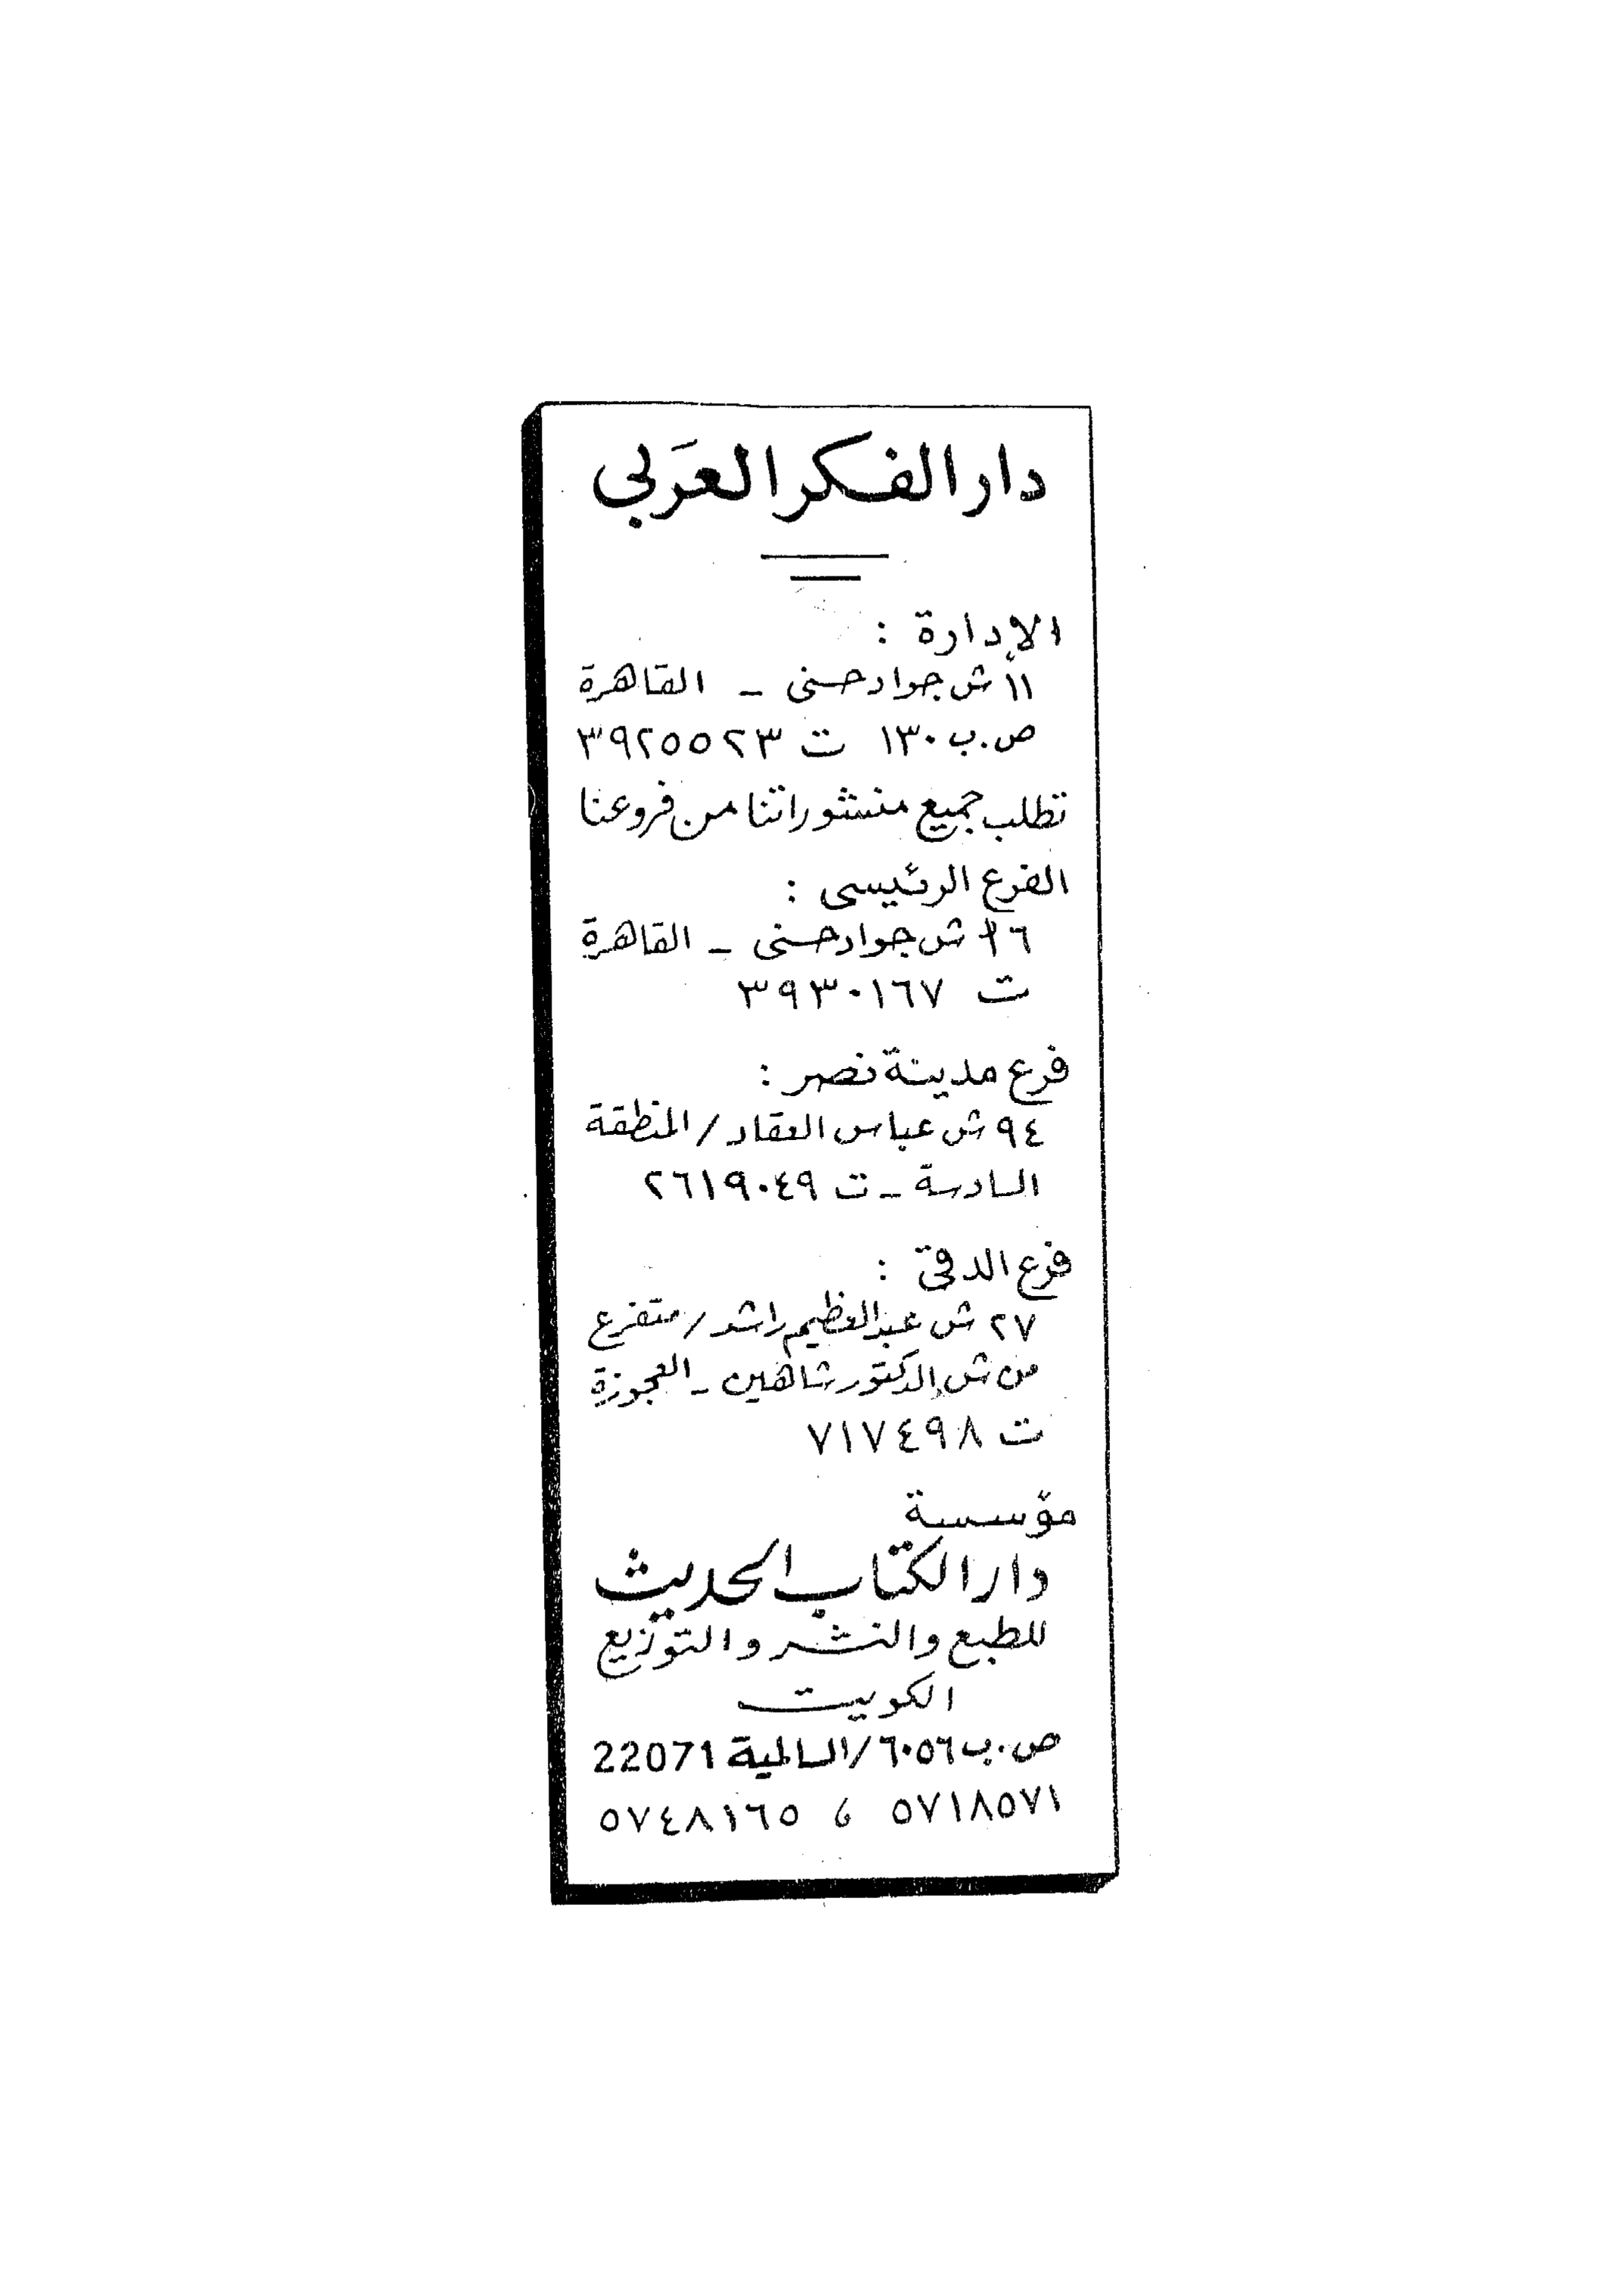 دار الفكر العربي
الإدارة :
١١ ش جواد حسنى - القاهرة
ص.ب ١٣٠ ت ٣٩٢٥٥٢٣
تطلب جميع منشوراتنا من فروعنا
الفرع الرئيسى :
٦ ش جواد حسنى - القاهرة
ت ٣٩٣٠١٦٧
فرع مدينة نصر :
٩٤ ش عباس العقاد / المنطقة
السادسة - ت ٢٦١٩٠٤٩
فرع الدقى :
٢٧ ش عبد العظيم راشد / متفرع
من ش الدكتور شاهين - العجوزة
ت ٧١٧٤٩٨
مؤسسة
دار الكتاب الحديث
للطبع والنشر والتوزيع
الكويت
ص.ب ٦٠٥٦/السالمية 22071
٥٧١٨٥٧١ ، ٥٧٤٨١٦٥